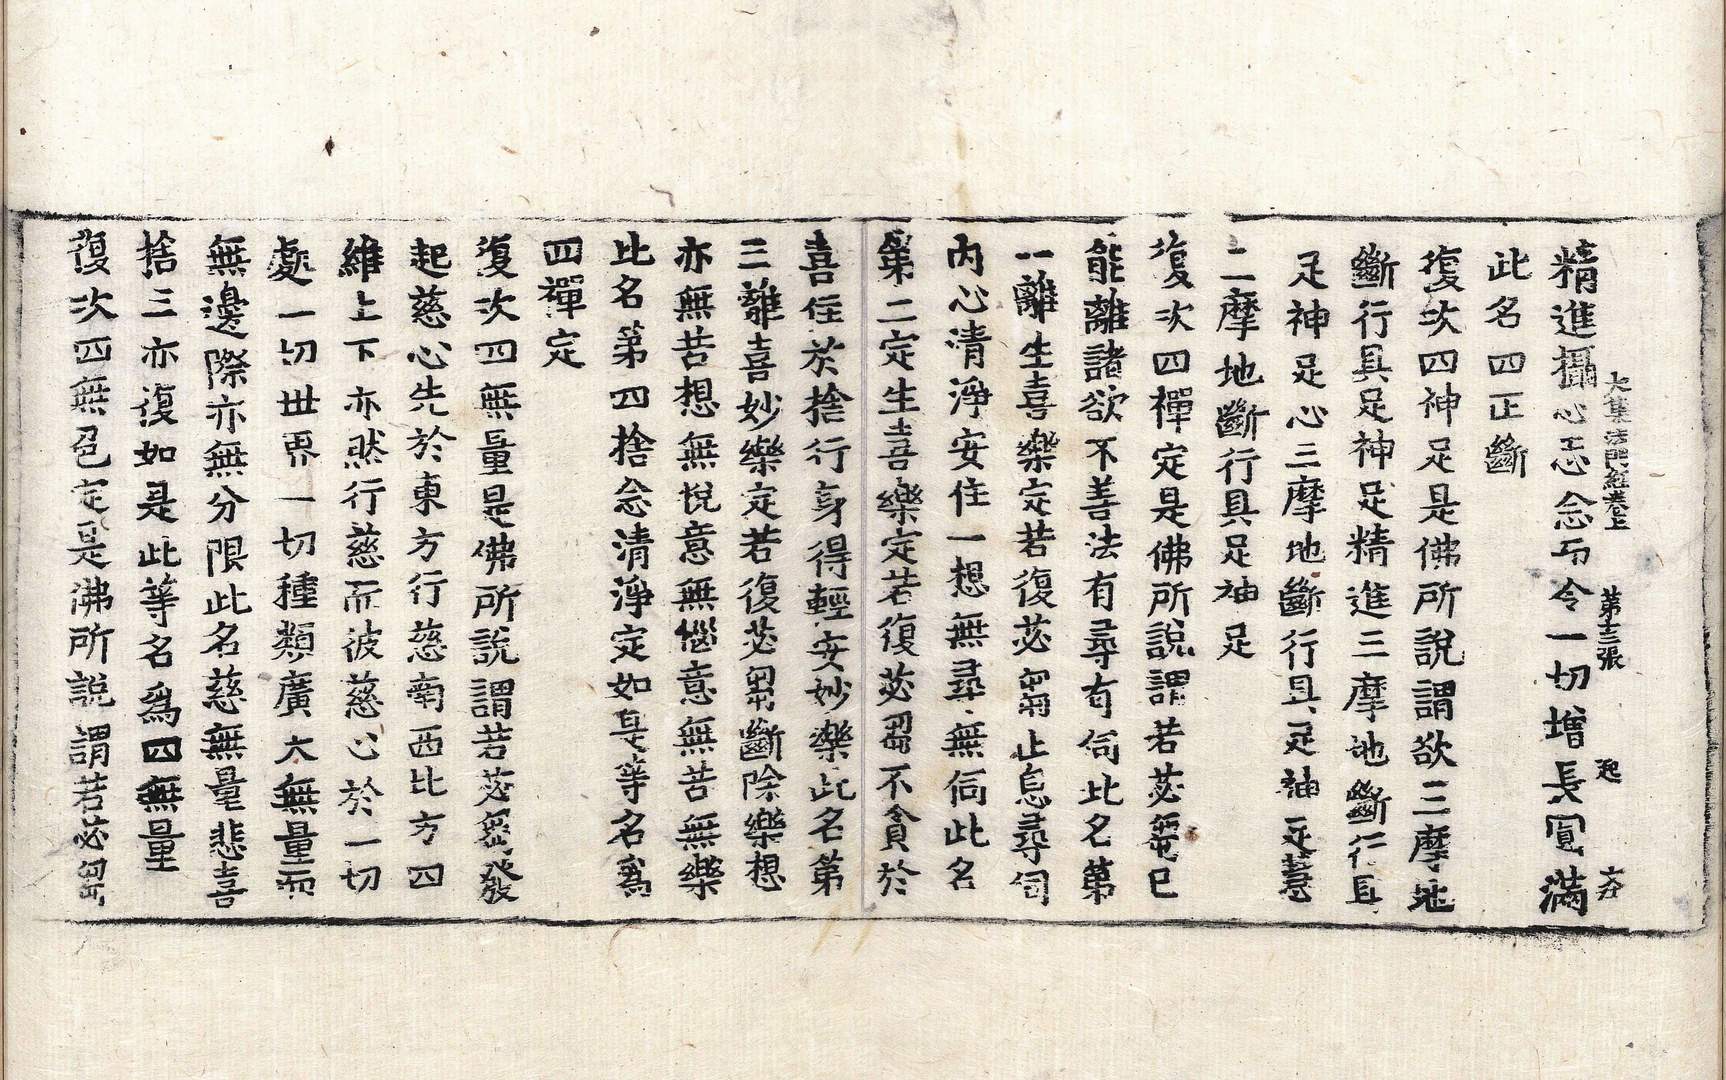 精進攝心正念而令一切增長圓滿
大集法門經卷上　第十三張　起　六
此名四正斷
復次四神足是佛所說謂欲三摩地
斷行具足神足精進三摩地斷行具
足神足心三摩地斷行具足神足慧
三摩地斷行具足神足
復次四禪定是佛所說謂若苾芻已
能離諸欲不善法有尋有伺此名第
一離生喜樂定若復苾芻止息尋伺
內心清淨安住一想無尋無伺此名
第二定生喜樂定若復苾芻不貪於
喜住於捨行身得輕安妙樂此名第
三離喜妙樂定若復苾芻斷除樂想
亦無苦想無悅意無惱意無苦無樂
此名第四捨念清淨定如是等名為
四禪定
復次四無量是佛所說謂若苾芻發
起慈心先於東方行慈南西北方四
維上下亦然行慈而彼慈心於一切
處一切世界一切種類廣大無量而
無邊際亦無分限此名慈無量悲喜
捨三亦復如是此等名為四無量
復次四無色定是佛所說謂若苾芻